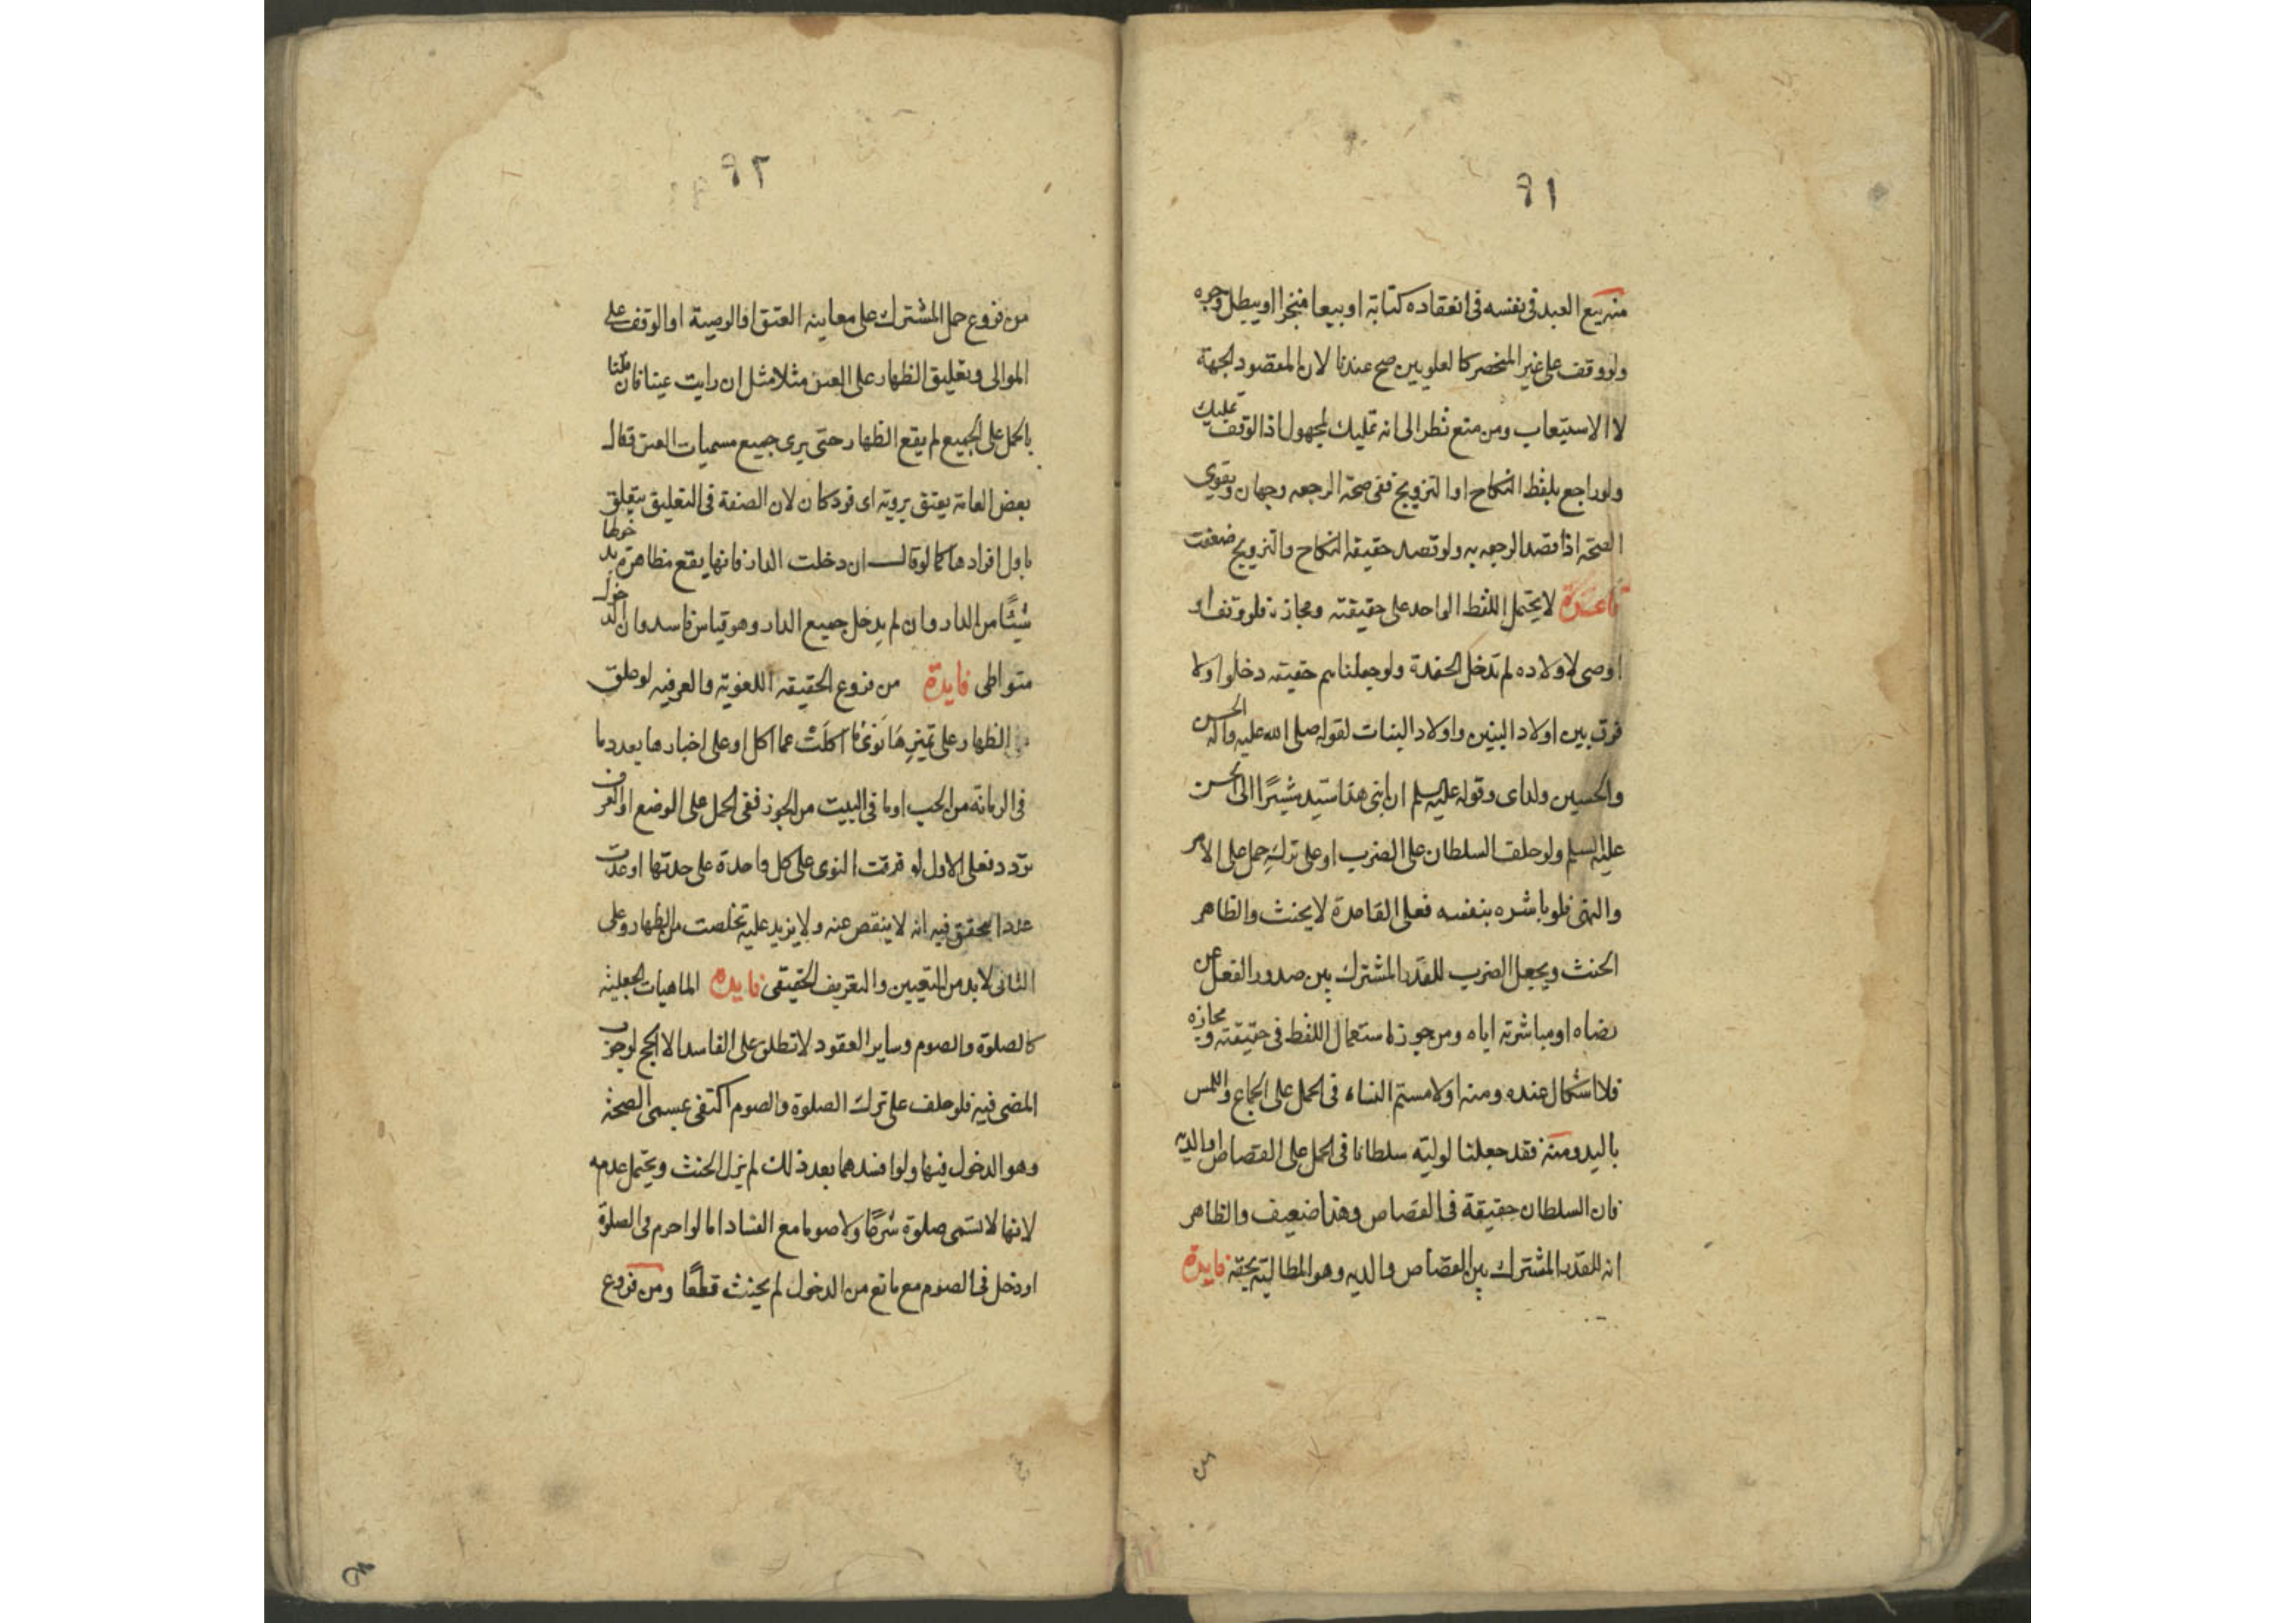 ٩١
منه بيع العبد في نفسه في انعقاده كتابة او بيعا منجزا او يبطل وجوه
ولو وقف على غير المنحصر كالعلويين صح عندنا لان المقصود الجهة
لا الاستيعاب ومن منع نظر الى انه تمليك لمجهول اذ الوقف تمليك
ولو راجع بلفظ النكاح او التزويج ففي صحة الرجعه وجهان ويقوي
الصحة اذا قصد الرجعه به ولو قصد حقيقة النكاح والتزويج ضعفت
قاعدة لا يحتمل اللفظ الواحد على حقيقته ومجازه فلو وقف او
اوصى لاولاده لم تدخل الحفدة ولو جعلناهم حقيقة دخلوا ولا
فرق بين اولاد البنين واولاد البنات لقوله صلى الله عليه وآله الحسن
والحسين ولداى وقوله عليه السلم ان ابنى هذا سيد مشيرًا الى الحسن
عليه السلم ولو حلف السلطان على الضرب او على تركه حمل على الامر
والنهى فلو باشره بنفسه فعلى القاعدة لا يحنث والظاهر
الحنث ويجعل الضرب للقدر المشترك بين صدور الفعل عن
رضاه او مباشرته اياه ومن جوز استعمال اللفظ في حقيقته ومجازه
فلا اشكال عنده ومنه او لامستم النساء في الحمل على الجماع واللمس
باليد ومنه فقد جعلنا لوليه سلطانا في الحمل على القصاص او الديه
فان السلطان حقيقة في القصاص وهذا ضعيف والظاهر
انه للقدر المشترك بين القصاص والديه وهو المطالبة بحقه فايدة
٩٢
من فروع حمل المشترك على معاينه العتق او الوصية او الوقف على
الموالى وتعليق الظهار على العين مثلا مثل ان رايت عينا فان قلنا
بالحمل على الجميع لم يقع الظهار حتى يرى جميع مسميات العين قال
بعض العامة يعتق بروية اى فرد كان لان الصفة في التعليق يتعلق
باول افرادها كما لو قال ان دخلت الدار فانها يقع مظاهرة بدخولها
شيئًا من الدار وان لم يدخل جميع الدار وهو قياس فاسد وان الدخول
متواطى فايدة من فروع الحقيقة اللغوية والعرفيه لو علق
الظهار على تميز ما نوى ما اكلت عما اكل او على اخبارها بعدد ما
في الرمانة من الحب او ما في البيت من الجوز ففي الحمل على الوضع او العرف
تردد فعلى الاول لو فرقت النوى على كل واحدة على حدتها او عدت
عددا يتحقق فيه انه لا ينقص عنه ولا يزيد عليه تخلصت من الظهار وعلى
الثانى لا بد من التعيين والتعريف الحقيقى فايده الماهيات الجعلية
كالصلوة والصوم وساير العقود لا تطلق على الفاسد الا الحج لوجوب
المضى فيه فلو حلف على ترك الصلوة والصوم اكتفى بمسمى الصحة
وهو الدخول فيها ولو افسدهما بعد ذلك لم يزل الحنث ويحتمل عدمه
لانها لا تسمى صلوة شرعًا ولا صوما مع الفساد اما لو احرم في الصلوة
او دخل في الصوم مع مانع من الدخول لم يحنث قطعًا ومن فروع